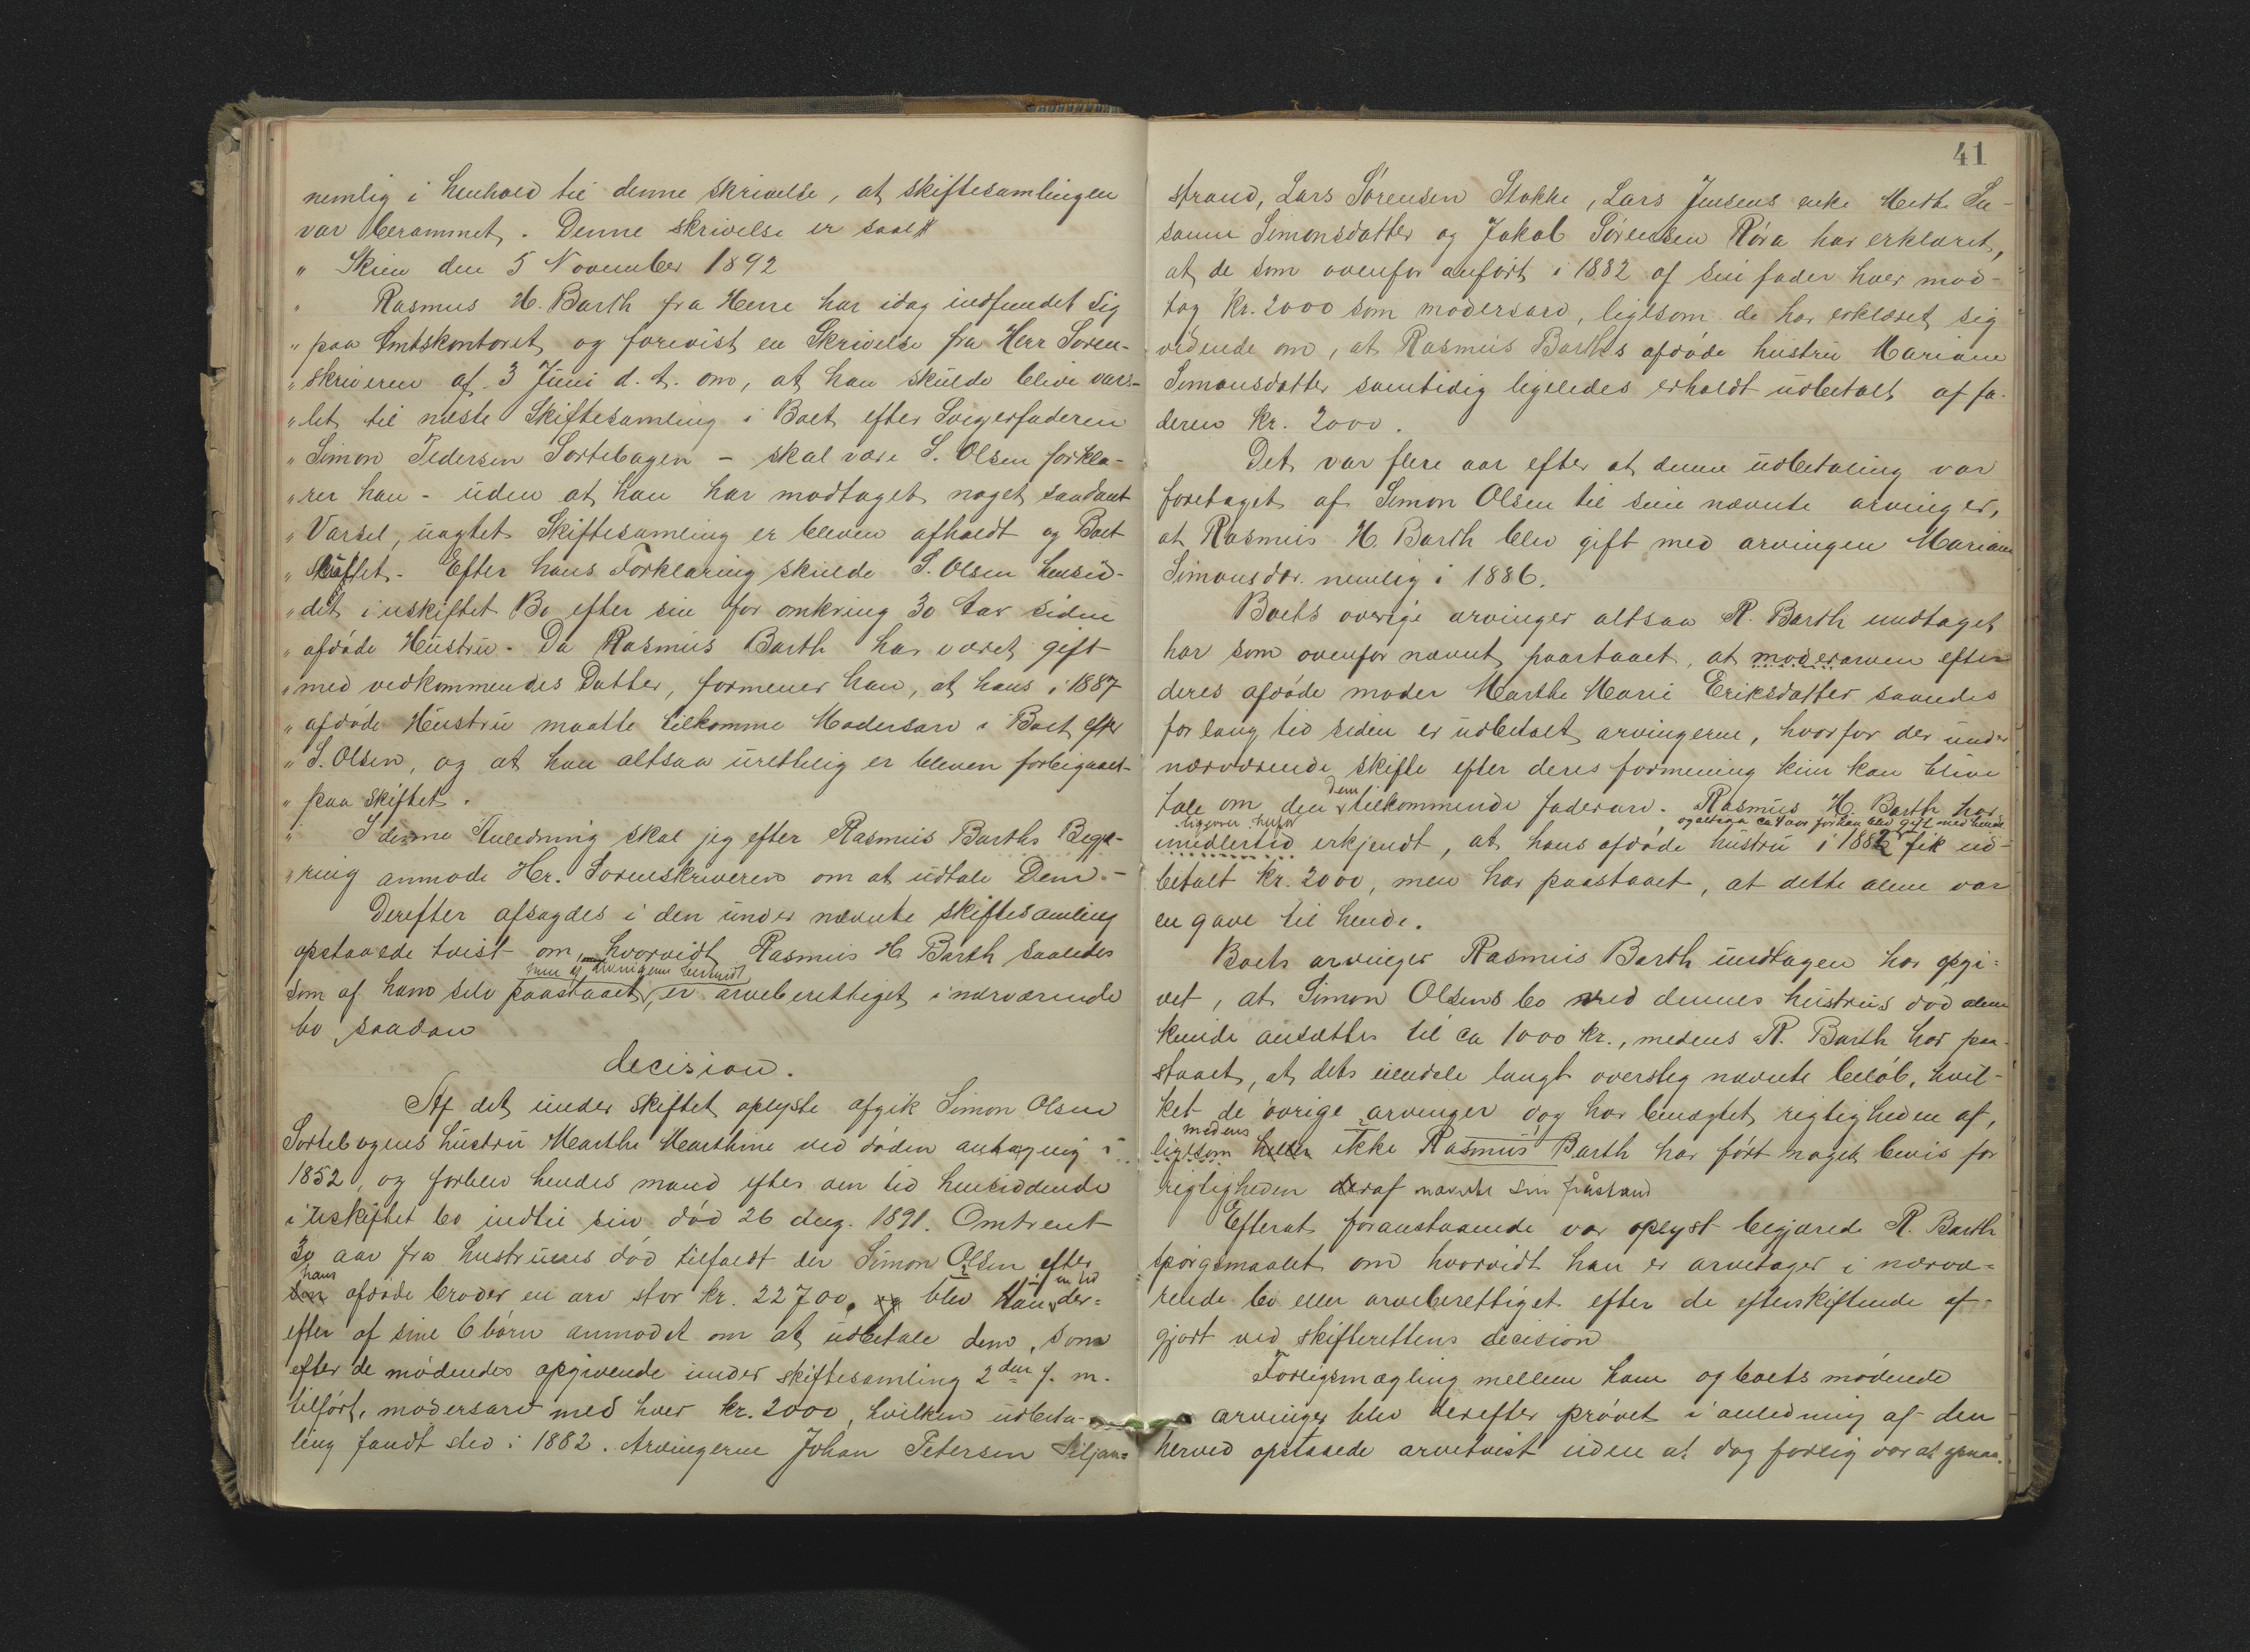 nemlig i henhold til denne skrivelse, at skiftesamlingen
var berammet. Denne skrivelse er saal
" Skien den 5 November 1892
" Rasmus H. Barth fra Herre har idag indfundet sig
" paa Amtskontoret og forevist en Skrivelse fra Herr Soren-
" skriveren af 3 Juni d. A. om, at han skulde blive vars-
" let til næste Skiftesamling i Boet efter Svigerfaderen
" Simon Pedersen Sortebogen – skal være S. Olsen forkla-
" rer han – uden at han har modtaget noget saadant
" Varsel, uagtet Skiftesamling er bleven afholdt og Boet
" sluttet. Efter hans Forklaring skulde S. Olsen hensid-
" det i uskiftet Bo efter sin for omkring 30 Aar siden
" afdøde Hustru. Da Rasmus Barth har været gift
" med vedkommendes Datter, formener han, at hans i 1887
" afdøde Hustru maatte tilkomme Modersarv i Boet efter
" S. Olsen, og at han altsaa urettelig er bleven forbigaaet
" paa skiftet.
" I denne Anledning skal jeg efter Rasmus Barths Begjæ-
" ring anmode Hr. Sorenskriveren om at udtale Dem. –
Derefter afsagdes i den under nævnte skiftesamling
opstaaede tvist om, hvorvidt Rasmus H Barth saaledes
som af arvingerne benægtet
som af ham selv paastaaet, er arveberettiget i nærværende
bo, saadan
decision.
Af det under skiftet oplyste afgik Simon Olsen
Sortebogens hustru Marthe Marthine ved døden antagelig i
1852, og forblev hendes mand efter den tid hensiddende
i uskiftet bo indtil sin død 26 deg. 1891. Omtrent
30 aar fra hustruens død tilfaldt der Simon Olsen efter
hans en tid
sin afdøde broder en arv stor kr. 22700, og blev han der-
efter af sine 6 børn anmodet om at udbetale dem, som
efter de mødendes opgivende under skiftesamling 2den f. m.
tilført, modersarv med hver kr. 2000, hvilken udbeta-
ling fandt sted i 1882. Arvingerne Johan Petersen Siljan-
41
strand, Lars Sørensen Stokke, Lars Jensens enke Methe Su-
sanne Simonsdatter og Jakob Sørensen Røra har erklæret,
at de som ovenfor anført i 1882 af sin fader hver mod-
tog kr. 2000 som modersarv, ligesom de har erklæret sig
vidende om, at Rasmus Barths afdøde hustru Mariane
Simonsdatter samtidig ligeledes erholdt udbetalt af fa-
deren kr. 2000.
Det var flere aar efter at denne udbetaling var
foretaget af Simon Olsen til sine nævnte arvinger,
at Rasmus H. Barth blev gift med arvingen Mariane
Simonsdtr. nemlig i 1886.
Boets øvrige arvinger altsaa R. Barth undtaget
har som ovenfor nævnt paastaaet, at moderarven efter
deres afdøde moder Marthe Marie Eriksdatter saaledes
for lang tid siden er udbetalt arvingerne, hvorfor der under
nærværende skifte efter deres formening kun kan blive
dem
tale om den tilkommende faderarv. Rasmus H. Barth har
ligeover herfor og altsaa ca 4 aar før han blev gift med hende
imidlertid erkjendt, at hans afdøde hustru i 1882 fik ud-
betalt kr. 2000, men har paastaaet, at dette alene var
en gave til hende.
Boets arvinger Rasmus Barth undtagen har opgi-
vet, at Simon Olsens bo ved dennes hustrus død alene
kunde ansættes til ca 1000 kr., medens R. Barth har paa-
staaet, at dets eiendele langt oversteg nævnte beløb, hvil-
ket de øvrige arvinger dog har benægtet rigtigheden af,
medens
ligesom heller ikke Rasmus Barth har ført noget bevis for
rigtigheden deraf nævnte sin påstand
Efterat foranstaaende var oplyst begjærede R. Barth
spørgsmaalet om hvorvidt han er arvetager i nærvæ-
rende bo eller arveberettiget efter de efterskiftende af-
gjort ved skifterettens decision
Forligsmægling mellem ham og boets mødende
arvinger blev derefter prøvet i anledning af den
herved opstaaede arvetvist uden at dog forlig var at opnaa.